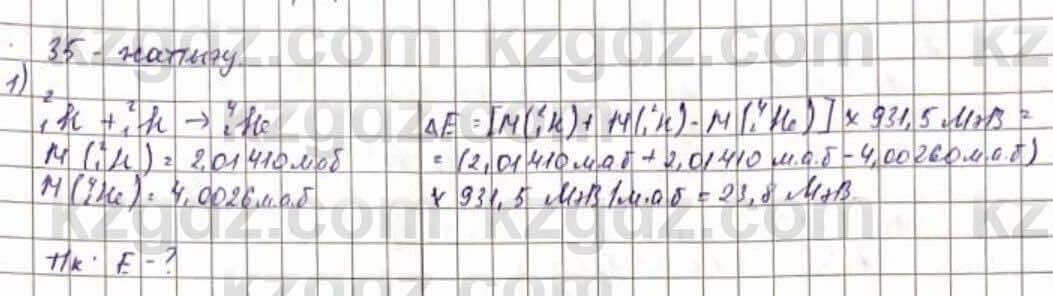 35 - жаттығу.
1)
²₁H + ²₁H → ⁴₂He
M(²₁H) = 2,01410 м.а.б
M(⁴₂He) = 4,0026 м.а.б
E - ?
ΔE = [M(²₁H) + M(²₁H) - M(⁴₂He)] × 931,5 МэВ =
= (2,01410 м.а.б + 2,01410 м.а.б - 4,00260 м.а.б)
× 931,5 МэВ/м.а.б = 23,8 МэВ.
kzgdz.com